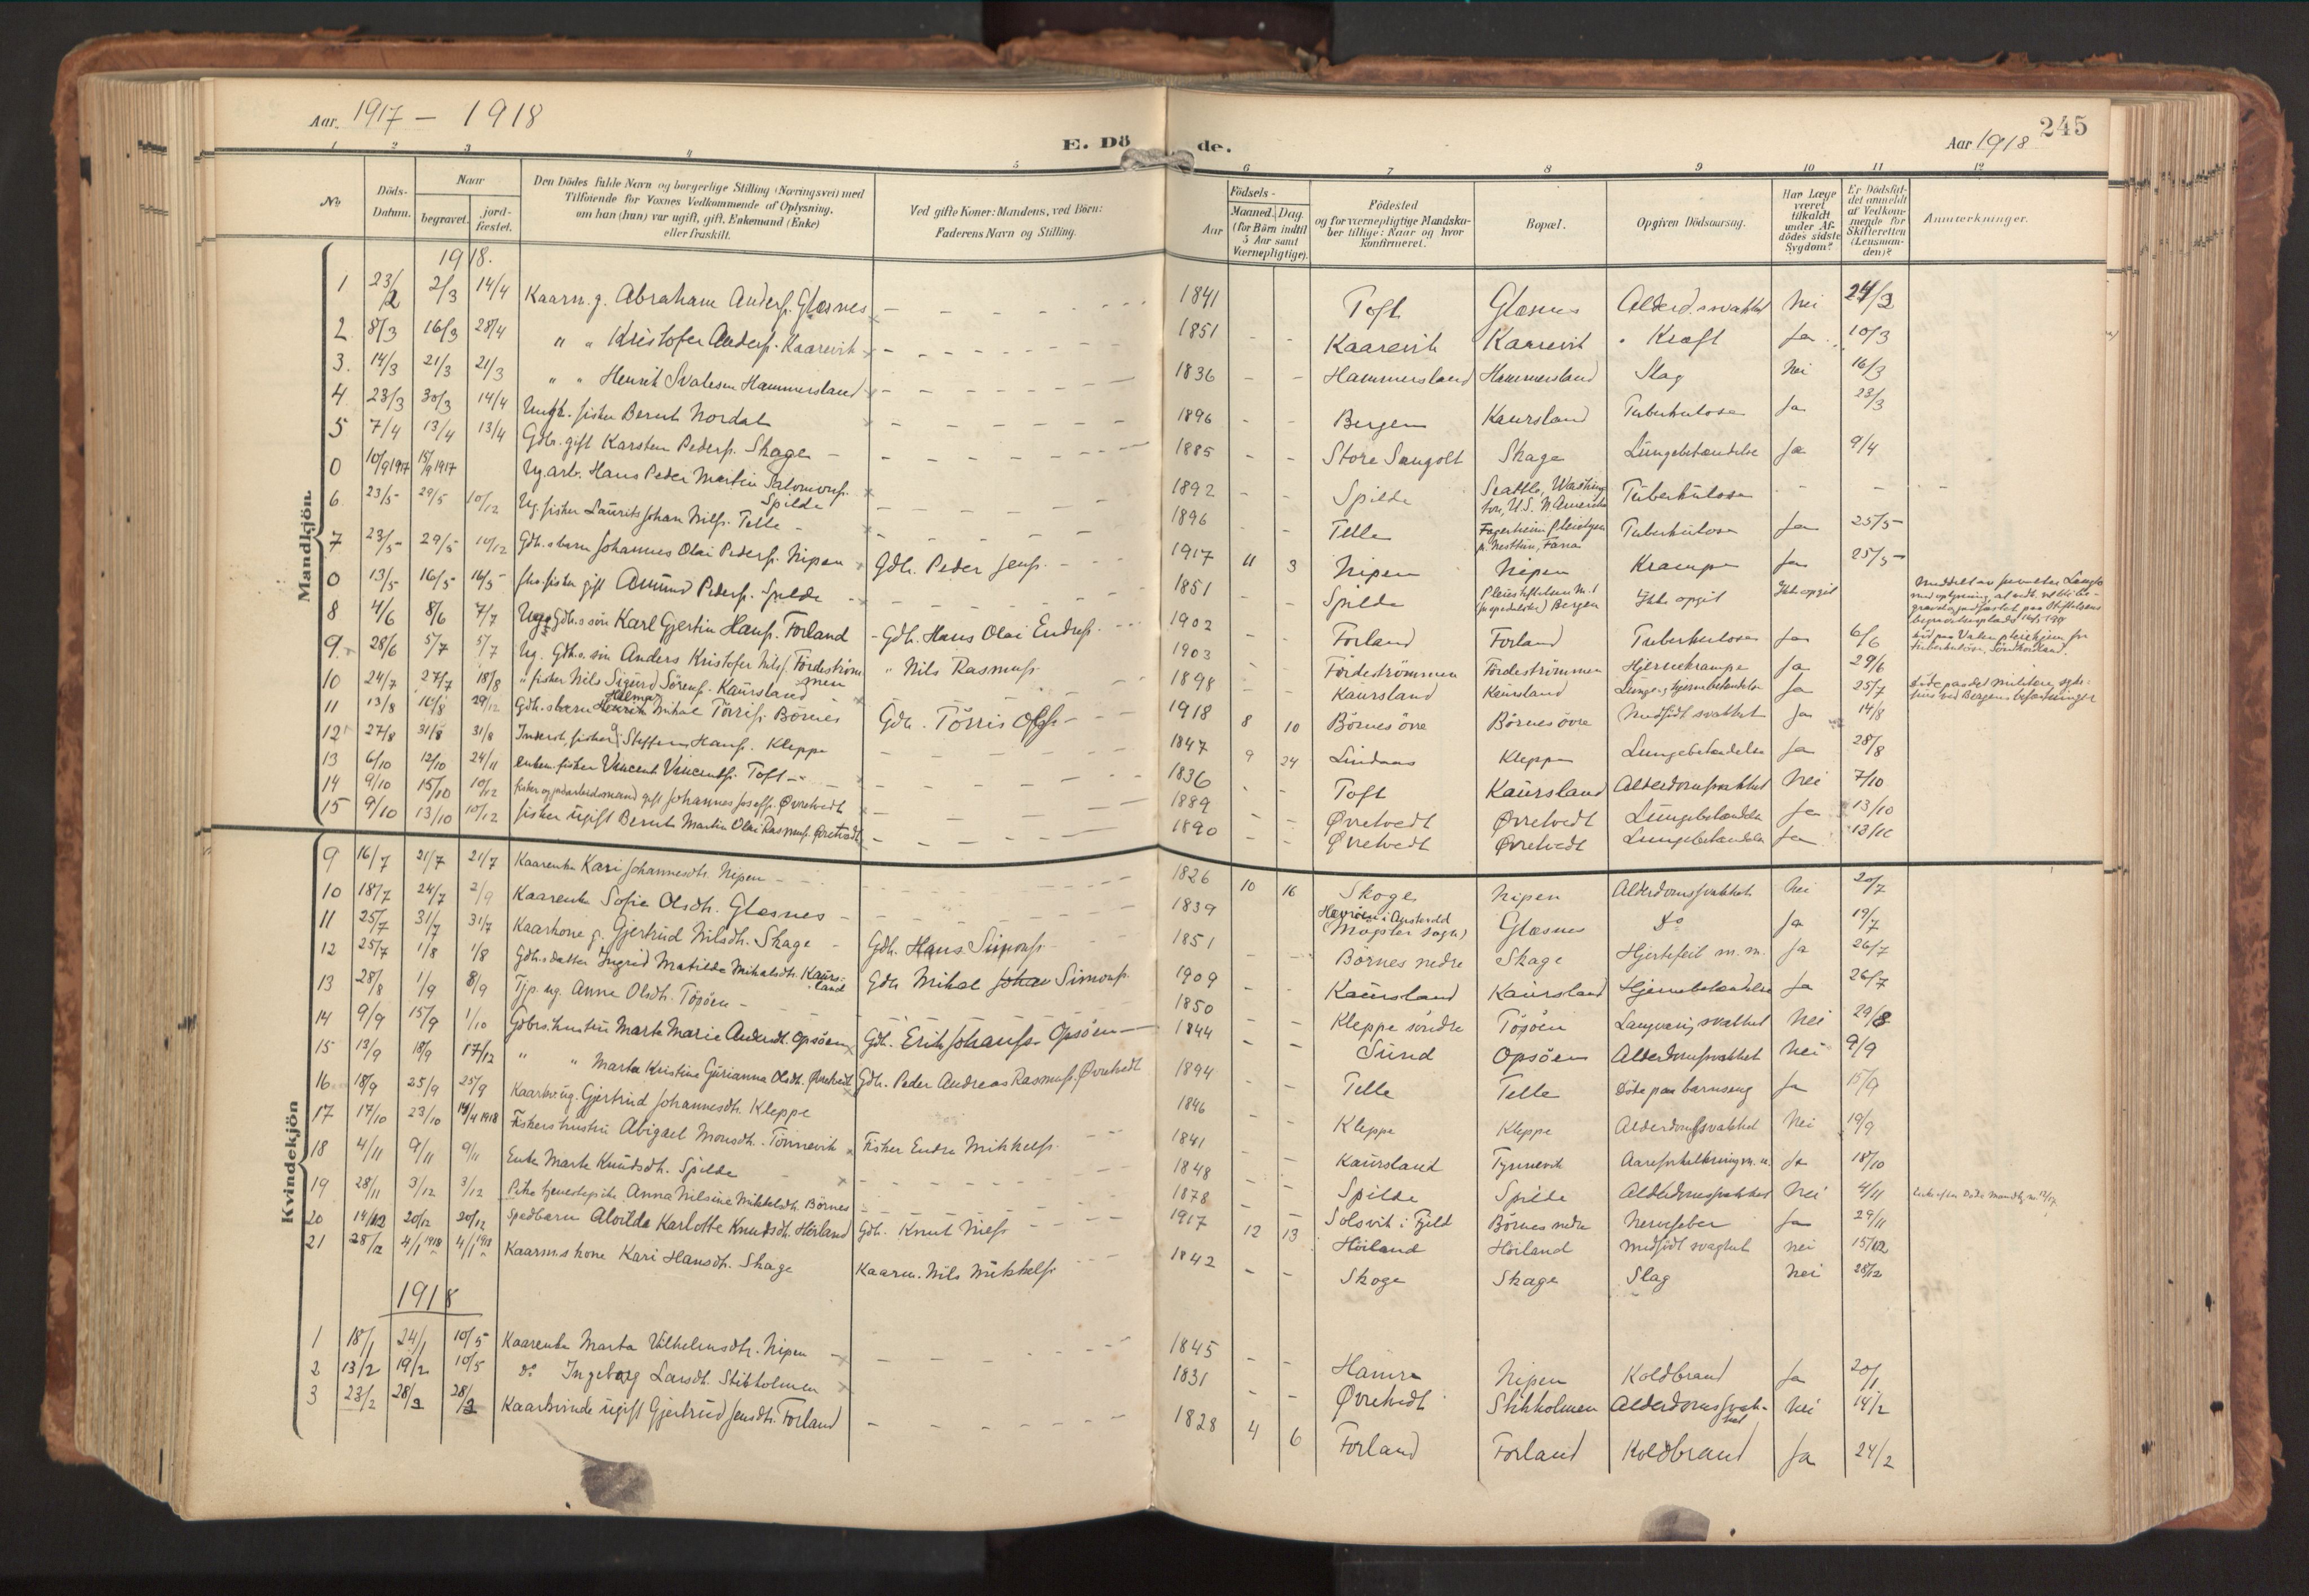 Aar. 1917 – 1918
E. Döde.
Aar 1918
245
1 2 3 4 5 6 7 8 9 10 11 12
No
Döds-Datum.
Naar
begravet.
jordfæstet.
Den Dödes fulde Navn og borgerlige Stilling (Næringsvei) med Tilföiende for Voxnes Vedkommende af Oplysning, om han (hun) var ugift, gift, Enkemand (Enke) eller fraskilt.
Ved gifte Koner: Mandens, ved Börn: Faderens Navn og Stilling.
Födsels-
Aar
Maaned. Dag. (for Börn indtil 5 Aar samt Værnepligtige).
Födested og for værnepligtige Mandskaber tillige: Naar og hvor konfirmeret.
Bopæl.
Opgiven Dödsaarsag.
Har Læge været tilkaldt under Afdödes sidste Sygdom?
Er Dödsfaldet anmeldt af Vedkommende for Skifteretten (Lensmanden)?
Anmærkninger.
Mandkjön.
1918.
1 23/2 2/3 14/4 Kaarm. g. Abraham Anders. Glæsnes 1841 Toft Glæsnes Alderd.svakhet Nei 24/2
2 8/3 16/3 28/4 " " Kristofer Anders. Kaarevik 1851 Kaarevik Kaarevik Kræft Ja 10/3
3. 14/3 21/3 21/3 " " Henrik Svalesen Hammersland 1836 Hammersland Hammersland Slag Nei 16/3
4 23/3 30/3 14/4 fisker Bernt Nordal 1896 Bergen Kaursland Tuberkulose Ja 23/3
5 7/4 13/4 13/4 Gdbr. gift Karsten Peders. Skage 1885 Store Sangolt Skage Lungebetændelse Ja 9/4
0 10/9 1917 15/9 1917 Ug. arb. Hans Peder Martin Salomons. Spilde 1892 Spilde Seattle, Washington, U.S. N. Amerika Tuberkulose
6 23/5 29/5 10/12 Ug. fisker Laurits Johan Nils. Telle 1896 Telle Fagerheim pleiehjem p. Nesttun, Fana Tuberkulose Ja 25/5
7 23/5 29/5 10/12 Gdb.s barn Johannes Olai Peders. Nipen Gdb. Peder Jens. 1917 11 3 Nipen Nipen Krampe Ja 25/5
0 13/5 16/5 16/5 fisker gift Amund Peders. Spilde 1851 Spilde Bergen Ikke opgit Ikke opgit
8 4/6 8/6 7/7 Ug. Gdb.s søn Karl Gjertin Hans. Forland Gdb. Hans Olai Endres. 1902 Forland Forland Tuberkulose Ja 6/6
9. 28/6 5/7 5/7 Ug. Gdb.s søn Anders Kristofer Nils. Fördeströmmen " Nils Rasmus. 1903 Fördeströmmen Fördeströmmen Hjernekrampe Ja 29/6
10 24/7 27/7 18/8 " fisker Nils Sigurd Sörens. Kaursland 1898 Kaursland Kaursland Lunge og hjernebetændelse Ja 25/7
11 13/8 16/8 29/12 Gdb.s barn Hilmar Mikal Törris. Börnes Gdb. Törris Ols. 1918 8 10 Börnes övre Börnes övre Medfödt svakhet Ja 14/8
12 27/8 31/8 31/8 fisker Steffen Hans. Kleppe 1847 9 24 Lindaas Kleppe Lungebetændelse Ja 28/8
13 6/10 12/10 24/11 Enkem. fisker Vincent Vincents. Toft 1836 Toft Kaursland Alderdomssvakhet Nei 7/10
14 9/10 15/10 10/12 fisker og jordarbeidsmand gift Johannes Josefs. Øvretvedt 1889 Øvretvedt Øvretvedt Lungebetændelse Ja 13/10
15 9/10 13/10 10/12 fisker ugift Bernt Martin Olai Rasmus. Øvretvedt 1890 Øvretvedt Øvretvedt Lungebetændelse Ja 13/10
Kvindekjön
9 16/7 21/7 21/7 Kaarenke Kari Johannesdtr. Nipen 1826 10 16 Skoge Nipen Alderdomssvakhet Nei 20/7
10 18/7 24/7 2/9 Kaarenke Sofie Olsdtr. Glæsnes 1839 Havröen i Austevold (Møgster sogn) Glæsnes Do Ja 19/7
11 25/7 31/7 31/7 Kaarkone g. Gjertrud Nilsdtr. Skage Gdb. Hans Simons. 1851 Börnes nedre Skage Hjertefeil m. m. Ja 26/7
12 25/7 1/8 1/8 Gdb.s datter Ingrid Matilde Mikalsdtr. Kaursland Gdb. Mikal Johan Simons. 1909 Kaursland Kaursland Hjernebetændelse Ja 26/7
13 28/8 1/9 8/9 Tjp. ug. Anna Olsdtr. Tösöen 1850 Kleppe söndre Tösöen Langvarig svakhet Nei 29/8
14 9/9 15/9 1/10 Gdbrs. hustru Marta Marie Andersdtr. Opsöen Gdb. Erik Johans. Opsöen 1844 Sund Opsöen Alderdomssvakhet Nei 9/9
15 13/9 18/9 17/12 " " Marta Kristine Gurianna Olsdtr. Øvretvedt Gdb. Peder Andreas Rasmus. Øvretvedt 1894 Telle Telle Döde paa barnseng Ja 15/9
16 18/9 25/9 25/9 Kaarkv. ug. Gjertrud Johannesdtr. Kleppe 1846 Kleppe Kleppe Alderdomssvakhet Nei 19/9
17 17/10 23/10 14/4 1918 Fiskers hustru Abigael Monsdtr. Tönnevik Fisker Endre Mikkels. 1841 Kaursland Tynnevik Aareforkalkning m. m. Ja 18/10
18 4/11 9/11 9/11 Enke Marta Knudsdtr. Spilde 1848 Spilde Spilde Alderdomssvakhet Nei 4/11
19 28/11 3/12 3/12 Pike tjenestepike Anna Nilsine Mikkelsdtr. Börnes 1878 Solsvik i Fjeld Börnes nedre Nervefeber Ja 29/11
20 14/12 20/12 20/12 Spædbarn Alvilde Karlotte Knudsdtr. Høiland Gdb. Knut Niels. 1917 12 13 Höiland Höiland Medfödt svaghet Nei 15/12
21 28/12 4/1 1918 4/1 1918 Kaarm.s kone Kari Hansdtr. Skage Kaarm. Nils Mikkels. 1842 Skoge Skage Slag Nei 28/12
1918
1 18/1 24/1 10/5 Kaarenke Marta Vilhelmsdtr. Nipen 1845 Hamre Nipen Koldbrand Ja 20/1
2 13/2 19/2 10/5 do Ingeborg Larsdtr. Stibholmen 1831 Øvretvedt Stibholmen Alderdomssvakhet Nei 14/2
3 23/2 28/2 28/2 Kaarkvinde ugift Gjertrud Jensdtr. Forland 1828 4 6 Forland Forland Koldbrand Ja 24/2